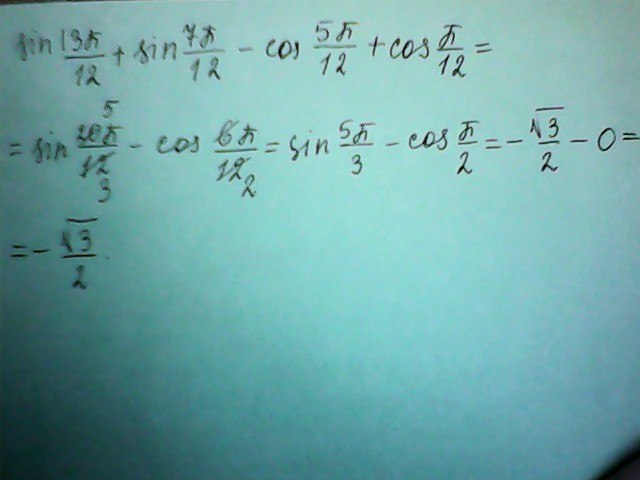 sin 13π/12 + sin 7π/12 − cos 5π/12 + cos π/12 =
= sin 20π/12 5 3 − cos 6π/12 2 = sin 5π/3 − cos π/2 = − √3/2 − 0 =
= − √3/2